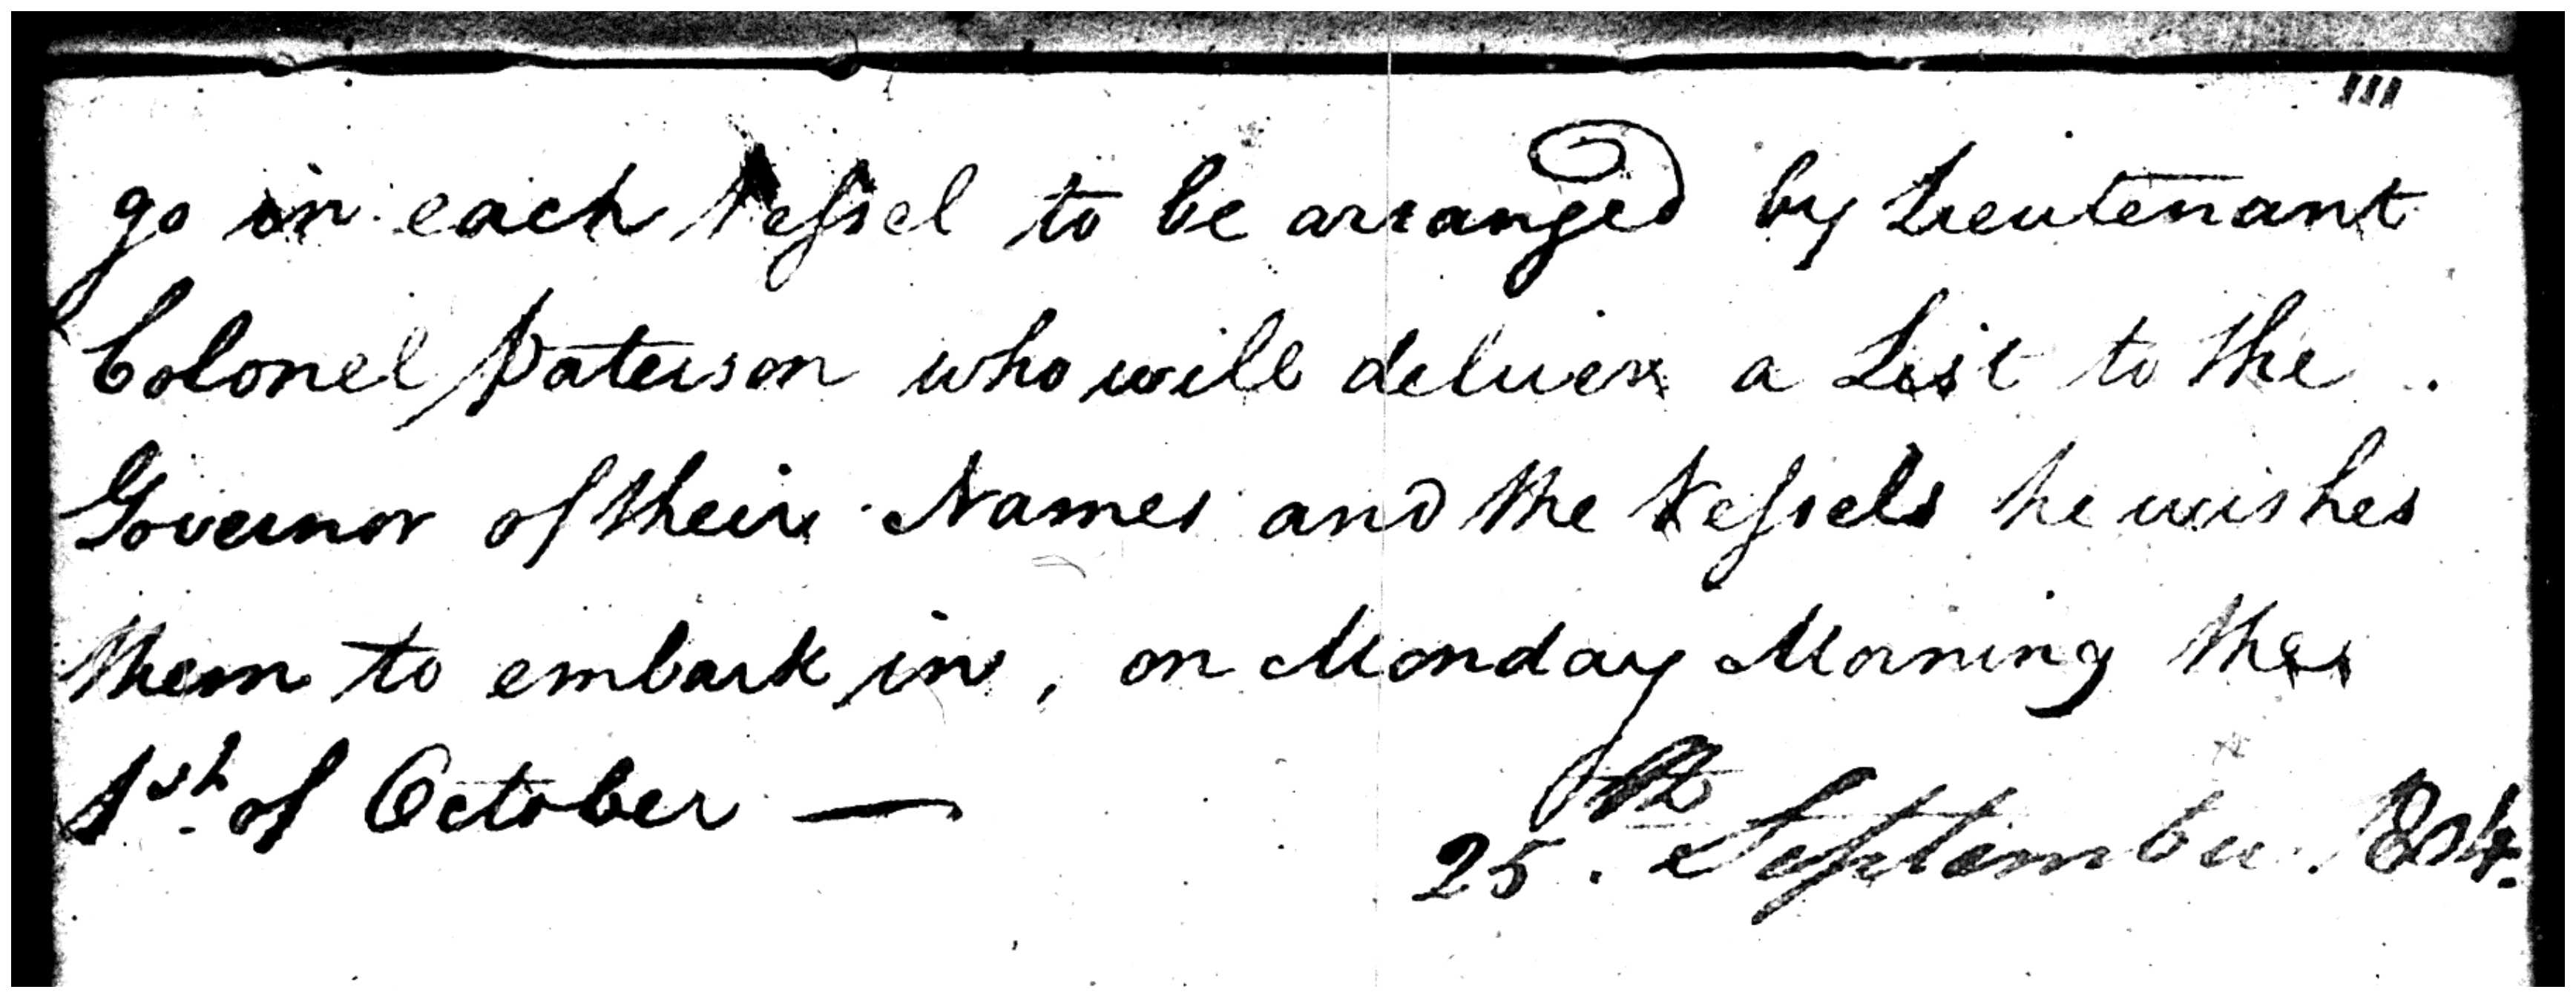 111
go in each Vessel to be arranged by Lieutenant
Colonel Paterson who will deliver a List to the
Governor of their Names and the Vessels he wishes
them to embark in, on Monday Morning the
1st. of October —
25th. September. 1804.